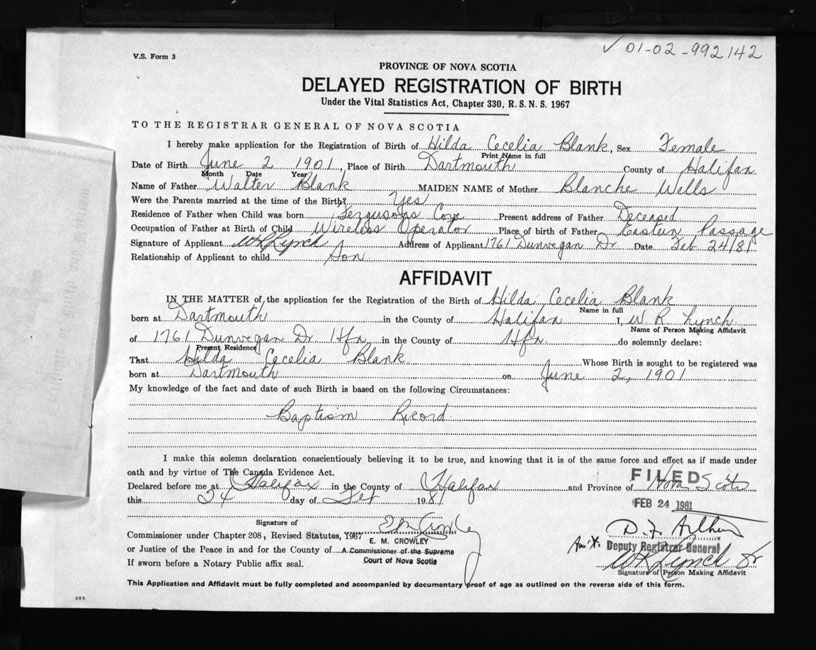 ✓ 01-02-992142
V.S. Form 3
PROVINCE OF NOVA SCOTIA
DELAYED REGISTRATION OF BIRTH
Under the Vital Statistics Act, Chapter 330, R.S.N.S. 1967
TO THE REGISTRAR GENERAL OF NOVA SCOTIA
I hereby make application for the Registration of Birth of Hilda Cecelia Blank, Sex Female
Print Name in full
Date of Birth June 2 1901, Place of Birth Dartmouth County of Halifax
Month Date Year
Name of Father Walter Blank MAIDEN NAME of Mother Blanche Wells
Were the Parents married at the time of the Birth? Yes
Residence of Father when Child was born Fergusons Cove Present address of Father Deceased
Occupation of Father at Birth of Child Wireless Operator Place of birth of Father Eastern Passage
Signature of Applicant W R Lynch Address of Applicant 1761 Dunvegan Dr Date Feb 24/81
Relationship of Applicant to child Son
AFFIDAVIT
IN THE MATTER of the application for the Registration of the Birth of Hilda Cecelia Blank
Name in full
born at Dartmouth in the County of Halifax I, W R Lynch
Name of Person Making Affidavit
of 1761 Dunvegan Dr Hfx in the County of Hfx do solemnly declare:
Present Residence
That Hilda Cecelia Blank Whose Birth is sought to be registered was
born at Dartmouth on June 2, 1901
My knowledge of the fact and date of such Birth is based on the following Circumstances:
Baptism Record
I make this solemn declaration conscientiously believing it to be true, and knowing that it is of the same force and effect as if made under
oath and by virtue of The Canada Evidence Act.
Declared before me at Halifax in the County of Halifax and Province of Nova Scotia
FILED
this 24 day of Feb 1981
FEB 24 1981
Signature of
Commissioner under Chapter 208, Revised Statutes, 1967 E M Crowley
E. M. CROWLEY
or Justice of the Peace in and for the County of A Commissioner of the Supreme
Court of Nova Scotia
Deputy Registrar General
If sworn before a Notary Public affix seal.
W R Lynch Jr
Signature of Person Making Affidavit
This Application and Affidavit must be fully completed and accompanied by documentary proof of age as outlined on the reverse side of this form.